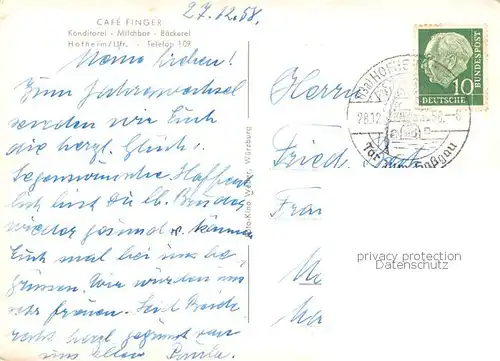 27.12.58.
CAFÉ FINGER
Konditorei - Milchbar - Bäckerei
Hofheim/Ufr. - Telefon 109
Meine Lieben!
Zum Jahreswechsel
senden wir Euch
die herzl. Glück-
Segenswünsche. Hoffent-
lich bist Du lb. Bruder
wieder gesund u. können
Euch mal bei uns be-
grüssen. Wir würden uns
sehr freuen. Seid Beide
recht herzl. gegrüsst von
uns allen
Foto-Kino Würzburg
Herrn
Fried
Frau
10
DEUTSCHE
BUNDESPOST
28.12
Tor
Haßgau
privacy protection
Datenschutz